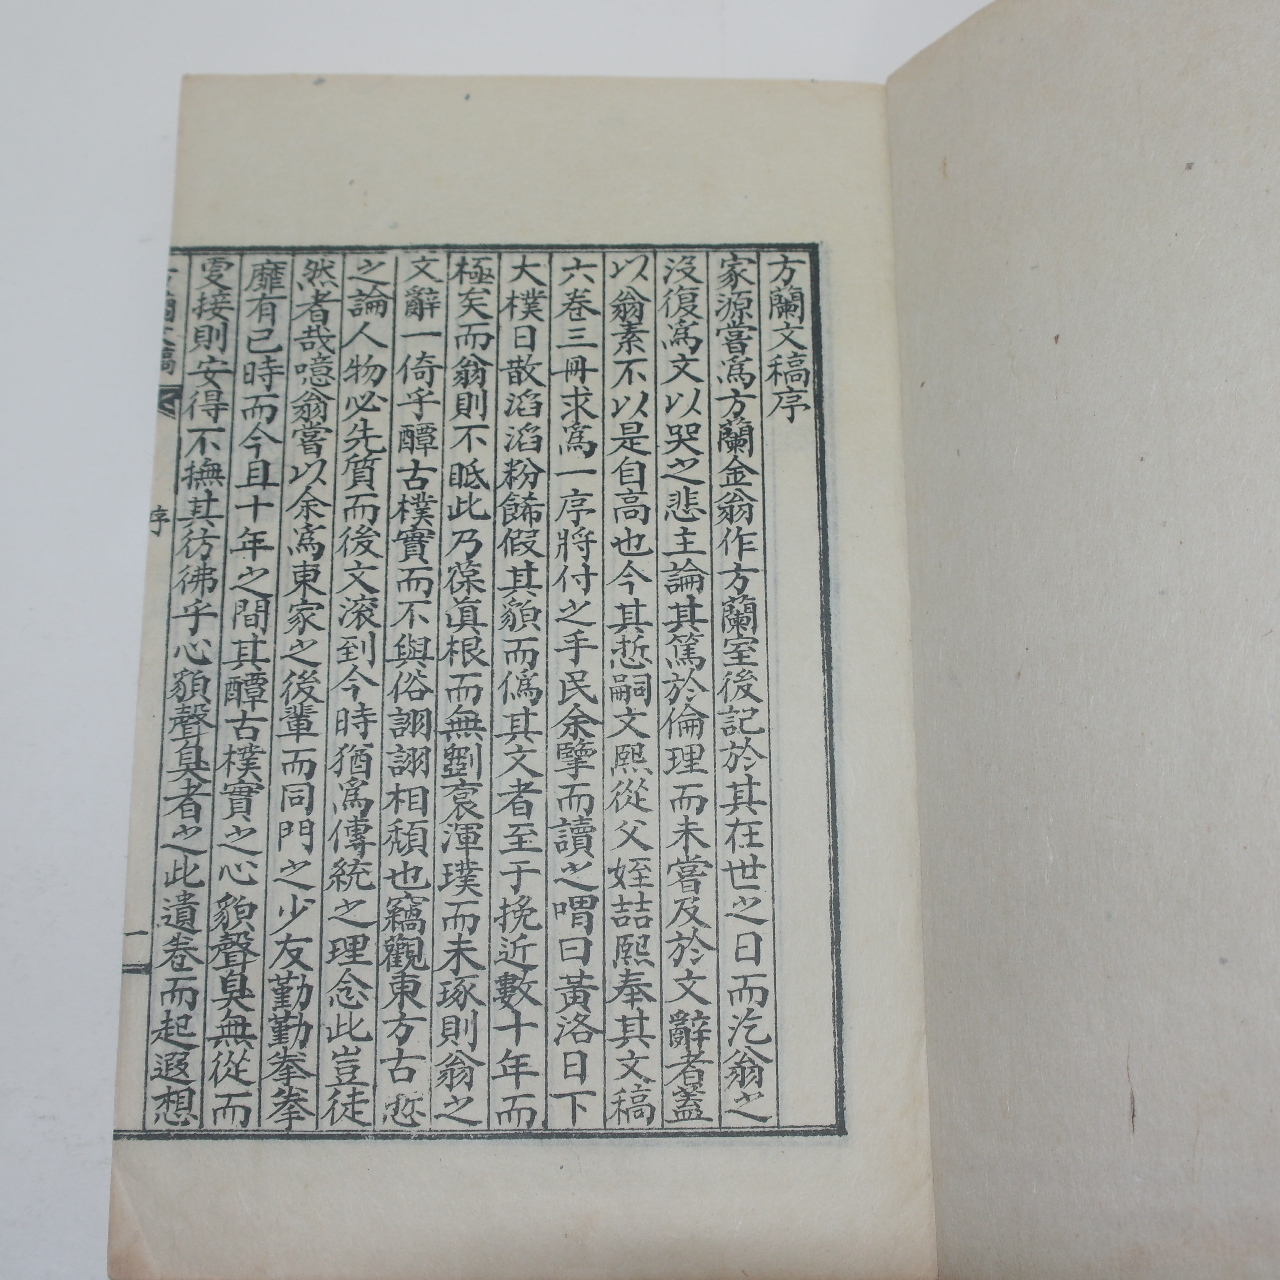 方蘭文稿序
家源嘗爲方蘭金翁作方蘭室後記於其在世之日而汔翁之
沒復爲文以哭之悲主論其篤於倫理而未嘗及於文辭者蓋
以翁素不以是自高也今其悊嗣文熙從父姪喆熙奉其文稿
六卷三冊求爲一序將付之手民余擥而讀之喟曰黃洛日下
大樸日散滔滔粉餙假其貌而僞其文者至于挽近數十年而
極矣而翁則不眂此乃葆眞根而無劉裒渾璞而未琢則翁之
文辭一倚乎醰古樸實而不與俗詡詡相頹也竊觀東方古悊
之論人物必先質而後文滾到今時猶爲傳統之理念此豈徒
然者哉噫翁嘗以余爲東家之後輩而同門之少友勤勤拳拳
靡有已時而今且十年之間其醰古樸實之心貌聲臭無從而
更接則安得不撫其彷彿乎心貌聲臭者之此遺卷而起遐想
序
一